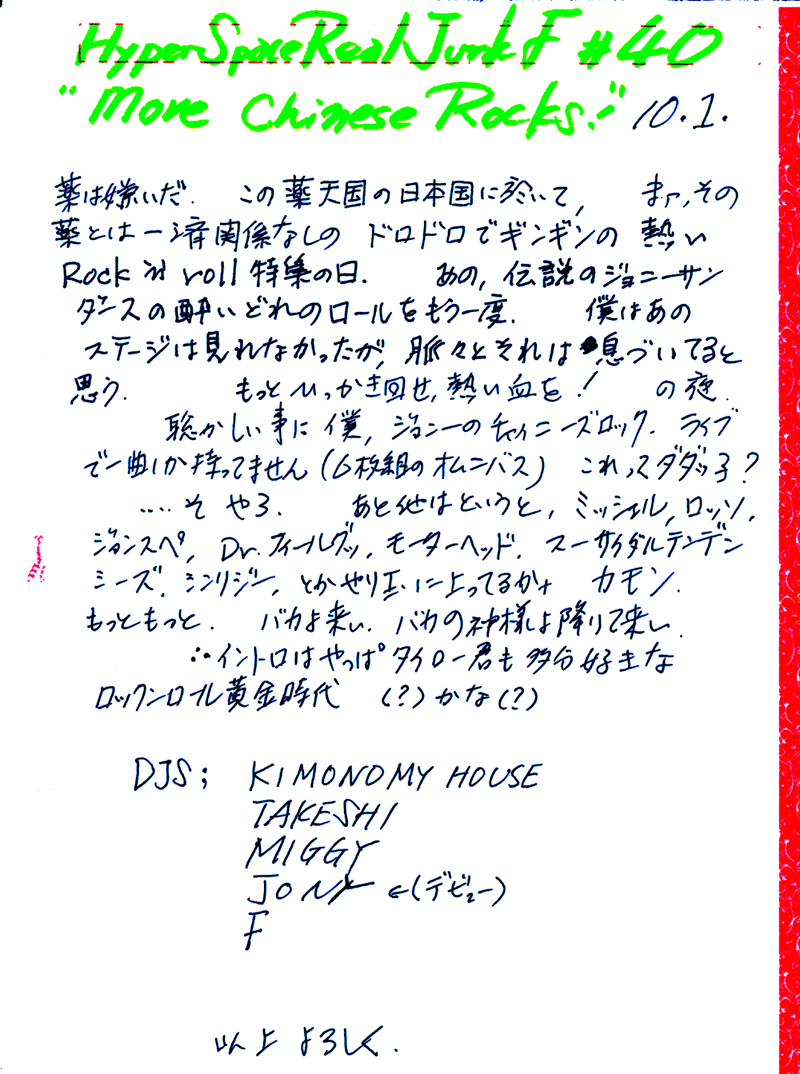 HyperSpaceRealJunk F #40
"More Chinese Rocks!" 10.1.
薬は嫌いだ. この薬天国の日本国に於いて, まァ,その
薬とは一済関係なしの ドロドロでギンギンの 熱い
Rock'n roll 特集の日. あの, 伝説のジョニーサン
ダースの酔いどれのロールをもう一度. 僕はあの
ステージは見れなかったが, 脈々とそれは息づいてると
思う. もっとひっかき回せ, 熱い血を! の夜.
聡かしい事に僕, ジョニーのチャイニーズロック. ライブ
で一曲しか持ってません (6枚組のオムニバス) これってダダッ子?
.... そ やろ. あと他はというと, ミッシェル, ロッソ,
ジョンスペ, Dr.フィールグッ, モーターヘッド. スーサイダルテンデン
シーズ, シンリジー, とかやり玉に上ってるかナ カモン.
もっともっと. バカよ来い. バカの神様よ降りて来い.
∴イントロはやっぱタイロー君も多分好きな
ロックンロール黄金時代 (?) かな (?)
DJS; KIMONOMY HOUSE
TAKESHI
MIGGY
JONY ←(デビュー)
F
以上 よろしく.